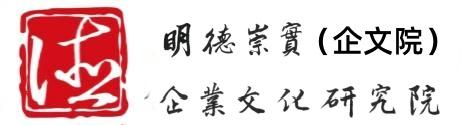 德
明德崇實（企文院）
企業文化研究院